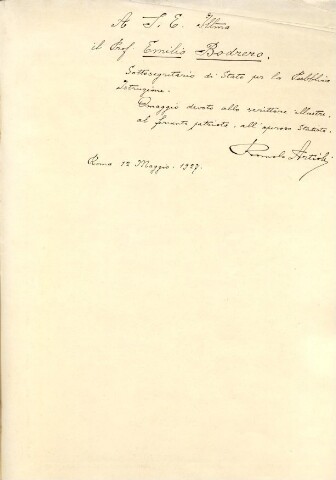 A S. E. Ill.mo
il Prof. Emilio Bodrero.
Sottosegretario di Stato per la Pubblica
Istruzione.
Omaggio devoto allo scrittore illustre,
al fervente patriota, all'operoso Statista.
Romolo Artioli
Roma 12 Maggio. 1927.